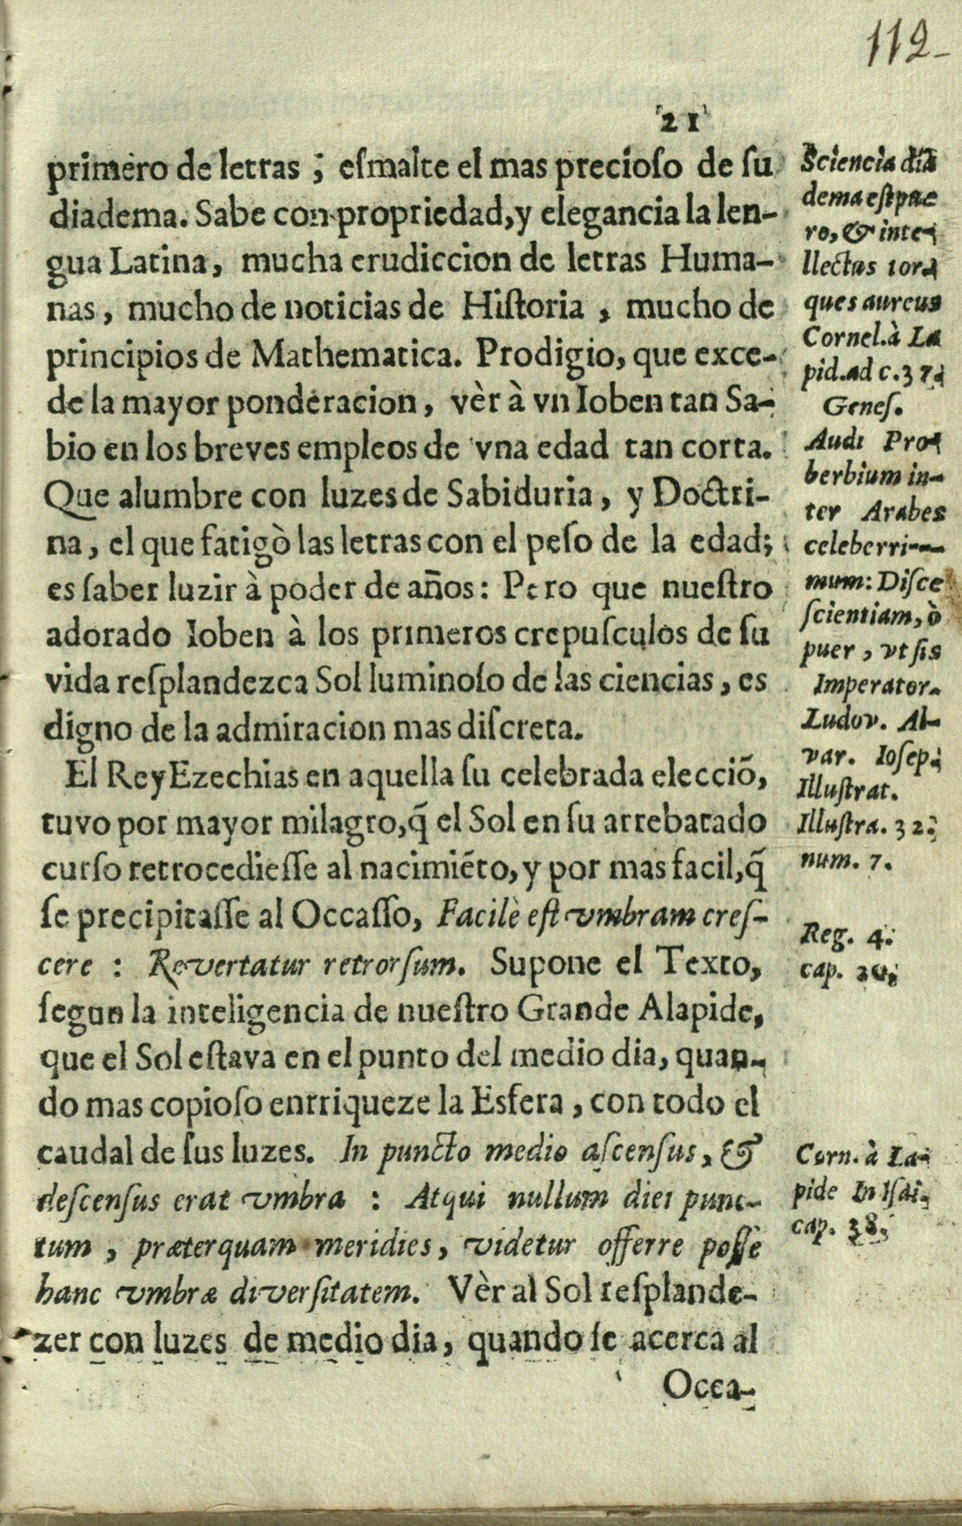 112
21
primero de letras ; esmalte el mas precioso de su
diadema. Sabe con propriedad, y elegancia la len-
gua Latina, mucha erudiccion de letras Huma-
nas, mucho de noticias de Historia , mucho de
principios de Mathematica. Prodigio, que exce-
de la mayor ponderacion, vèr à vn Ioben tan Sa-
bio en los breves empleos de vna edad tan corta.
Que alumbre con luzes de Sabiduria, y Doctri-
na, el que fatigò las letras con el peso de la edad;
es saber luzir à poder de años: Pero que nuestro
adorado Ioben à los primeros crepusculos de su
vida resplandezca Sol luminoso de las ciencias, es
digno de la admiracion mas discreta.
El Rey Ezechias en aquella su celebrada elecciõ,
tuvo por mayor milagro, q̃ el Sol en su arrebatado
curso retrocediesse al nacimiẽto, y por mas facil, q̃
se precipitasse al Occasso, Facilè est vmbram cres-
cere : Revertatur retrorsum. Supone el Texto,
segun la inteligencia de nuestro Grande Alapide,
que el Sol estava en el punto del medio dia, quan-
do mas copioso enrriqueze la Esfera , con todo el
caudal de sus luzes. In puncto medio ascensus, &
descensus erat vmbra : Atqui nullum diei punc-
tum , præterquam meridies, videtur offerre posse
hanc vmbræ diversitatem. Vèr al Sol resplande-
zer con luzes de medio dia, quando se acerca al
Occa-
Sciencia dia
dema est pue
ro, & inte-
llectus tor-
ques aureus
Cornel. à La
pid. ad c. 37.
Genes.
Audi Pro-
berbium in-
ter Arabes
celeberri-
mum: Disce
scientiam, ò
puer , vt sis
Imperator.
Ludov. Al-
var. Iosep.
Illustrat.
Illustra. 32.
num. 7.
Reg. 4.
cap. 20.
Corn. à La-
pide In Isai.
cap. 38.